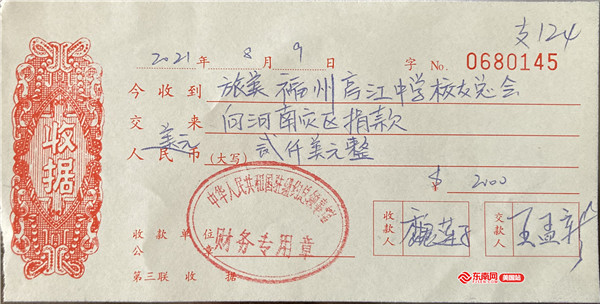 支124
2021年8月9日 字 No. 0680145
今收到 旅美福州亭江中学校友总会
交来 向河南灾区捐款
美元
人民币(大写) 贰仟美元整
$ 2000
收据
中华人民共和国驻纽约总领事馆
财务专用章
收款单位
公章
收款人
交款人 王孟
第三联 收据
东南网 美国站